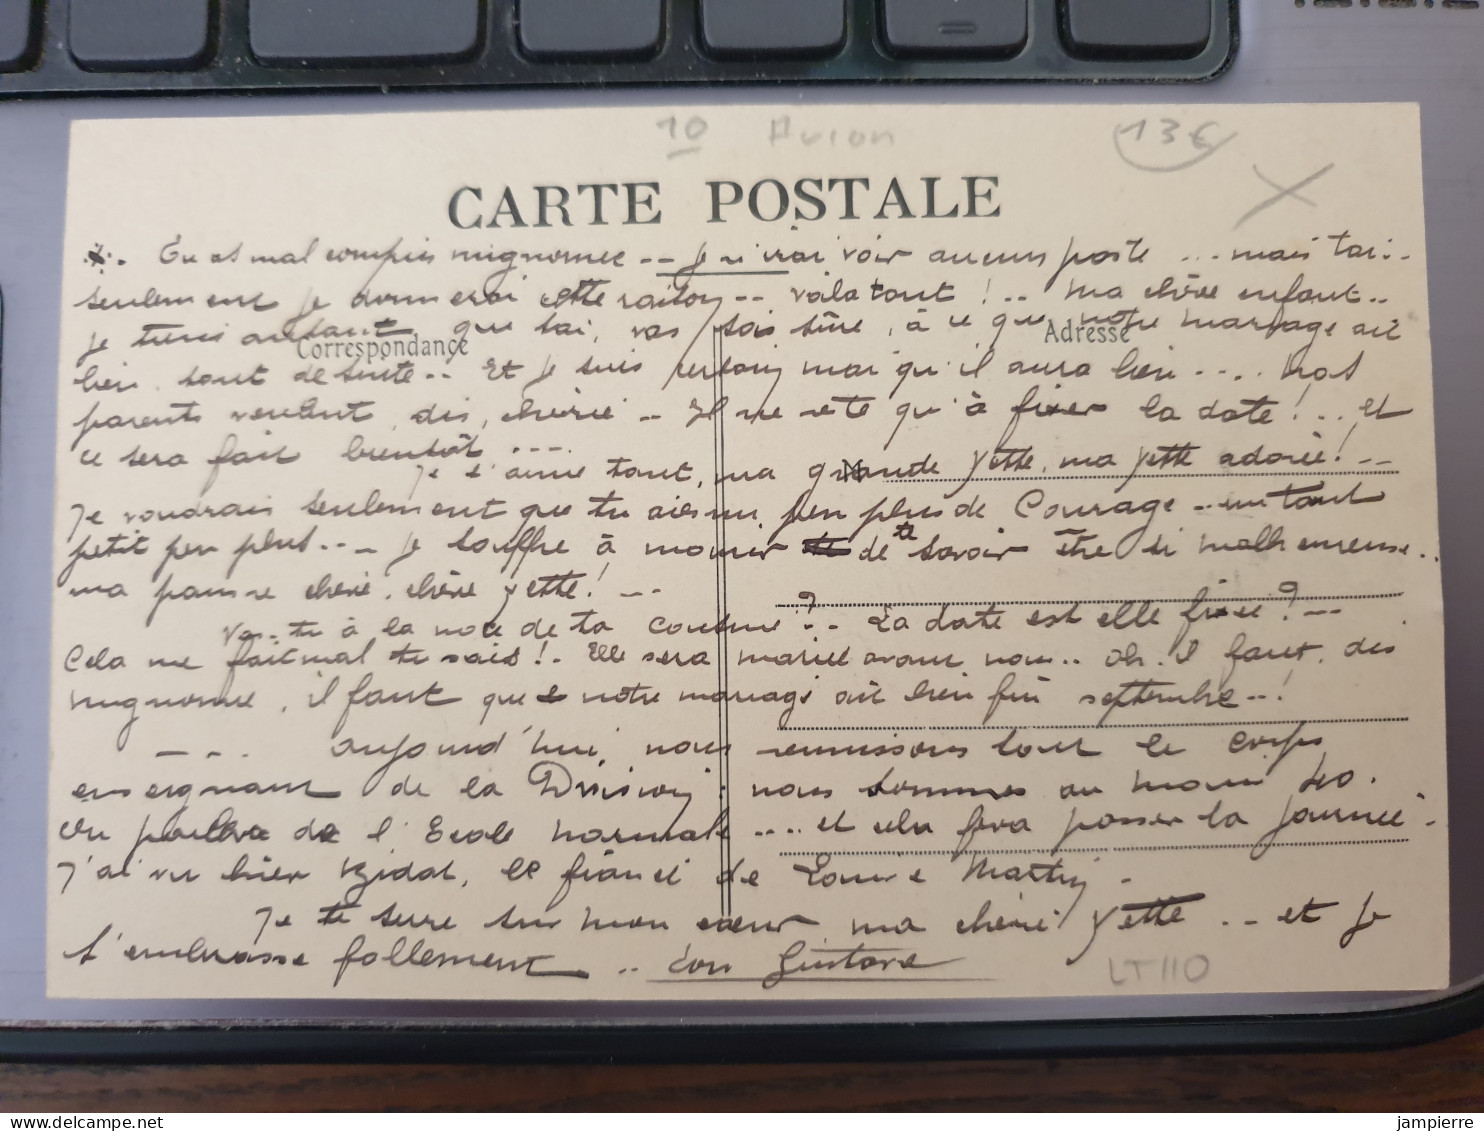 10 Avion 13€
CARTE POSTALE
Tu as mal compris mignonne -- je n'irai voir aucuns poste ... mais toi..
seulement je donnerai cette raison -- voila tout ! .. Ma chère enfant ..
je tiens autant que toi, vas, sois sûre, à ce que notre mariage ait
Correspondance
Adresse
lien tout de suite .. Et je suis certain moi qu'il aura lieu .... Nos
parents veulent, dis, chérie -- Il ne reste qu'à fixer la date ! .. et
ce sera fait bientôt ...
Je t'aime tant, ma grande Yette, ma Yette adorée ! --
Je voudrais seulement que tu aies un peu plus de courage .. un tout
petit peu plus .. - Je souffre à mourir de te savoir être si malheureuse..
ma pauvre chérie, chère Yette ! --
Vas-tu à la noce de ta cousine ? .. La date est elle fixée ? --
Cela me fait mal tu sais ! . Elle sera mariée avant nous .. Oh. il faut, dis
mignonne, il faut que notre mariage ait lieu fin septembre -- !
--. aujourd'hui nous réunissons tout le corps
enseignant de la Division ; nous sommes au moins 40.
On parlera de l'Ecole normale .... et cela fera passer la journée .
J'ai vu hier Vidal, le fiancé de Louise Martin .
Je te serre sur mon coeur ma chérie Yette .. et je
t'embrasse follement .. ton Gustave
LT110
jampierre